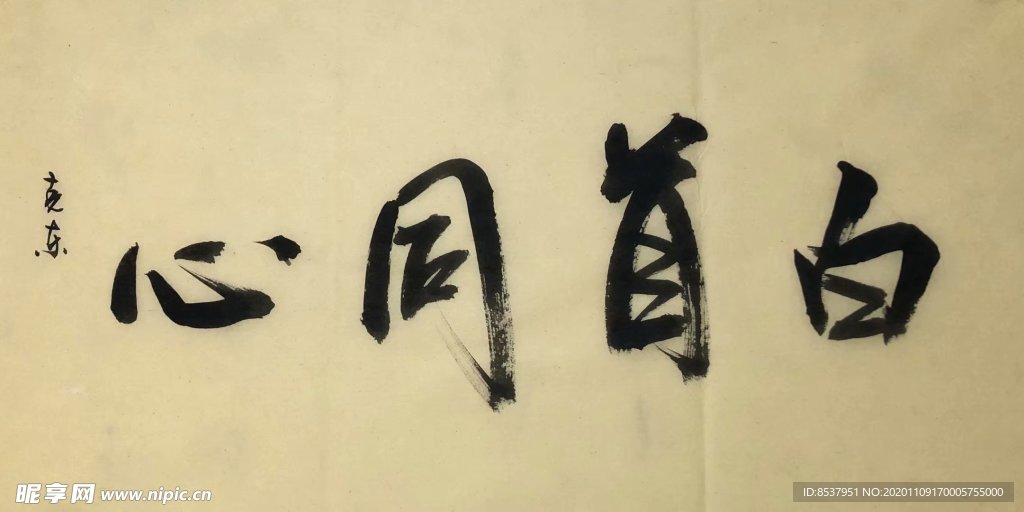 白首同心
克东
昵享网 www.nipic.cn
ID:8537951 NO:20201109170005755000